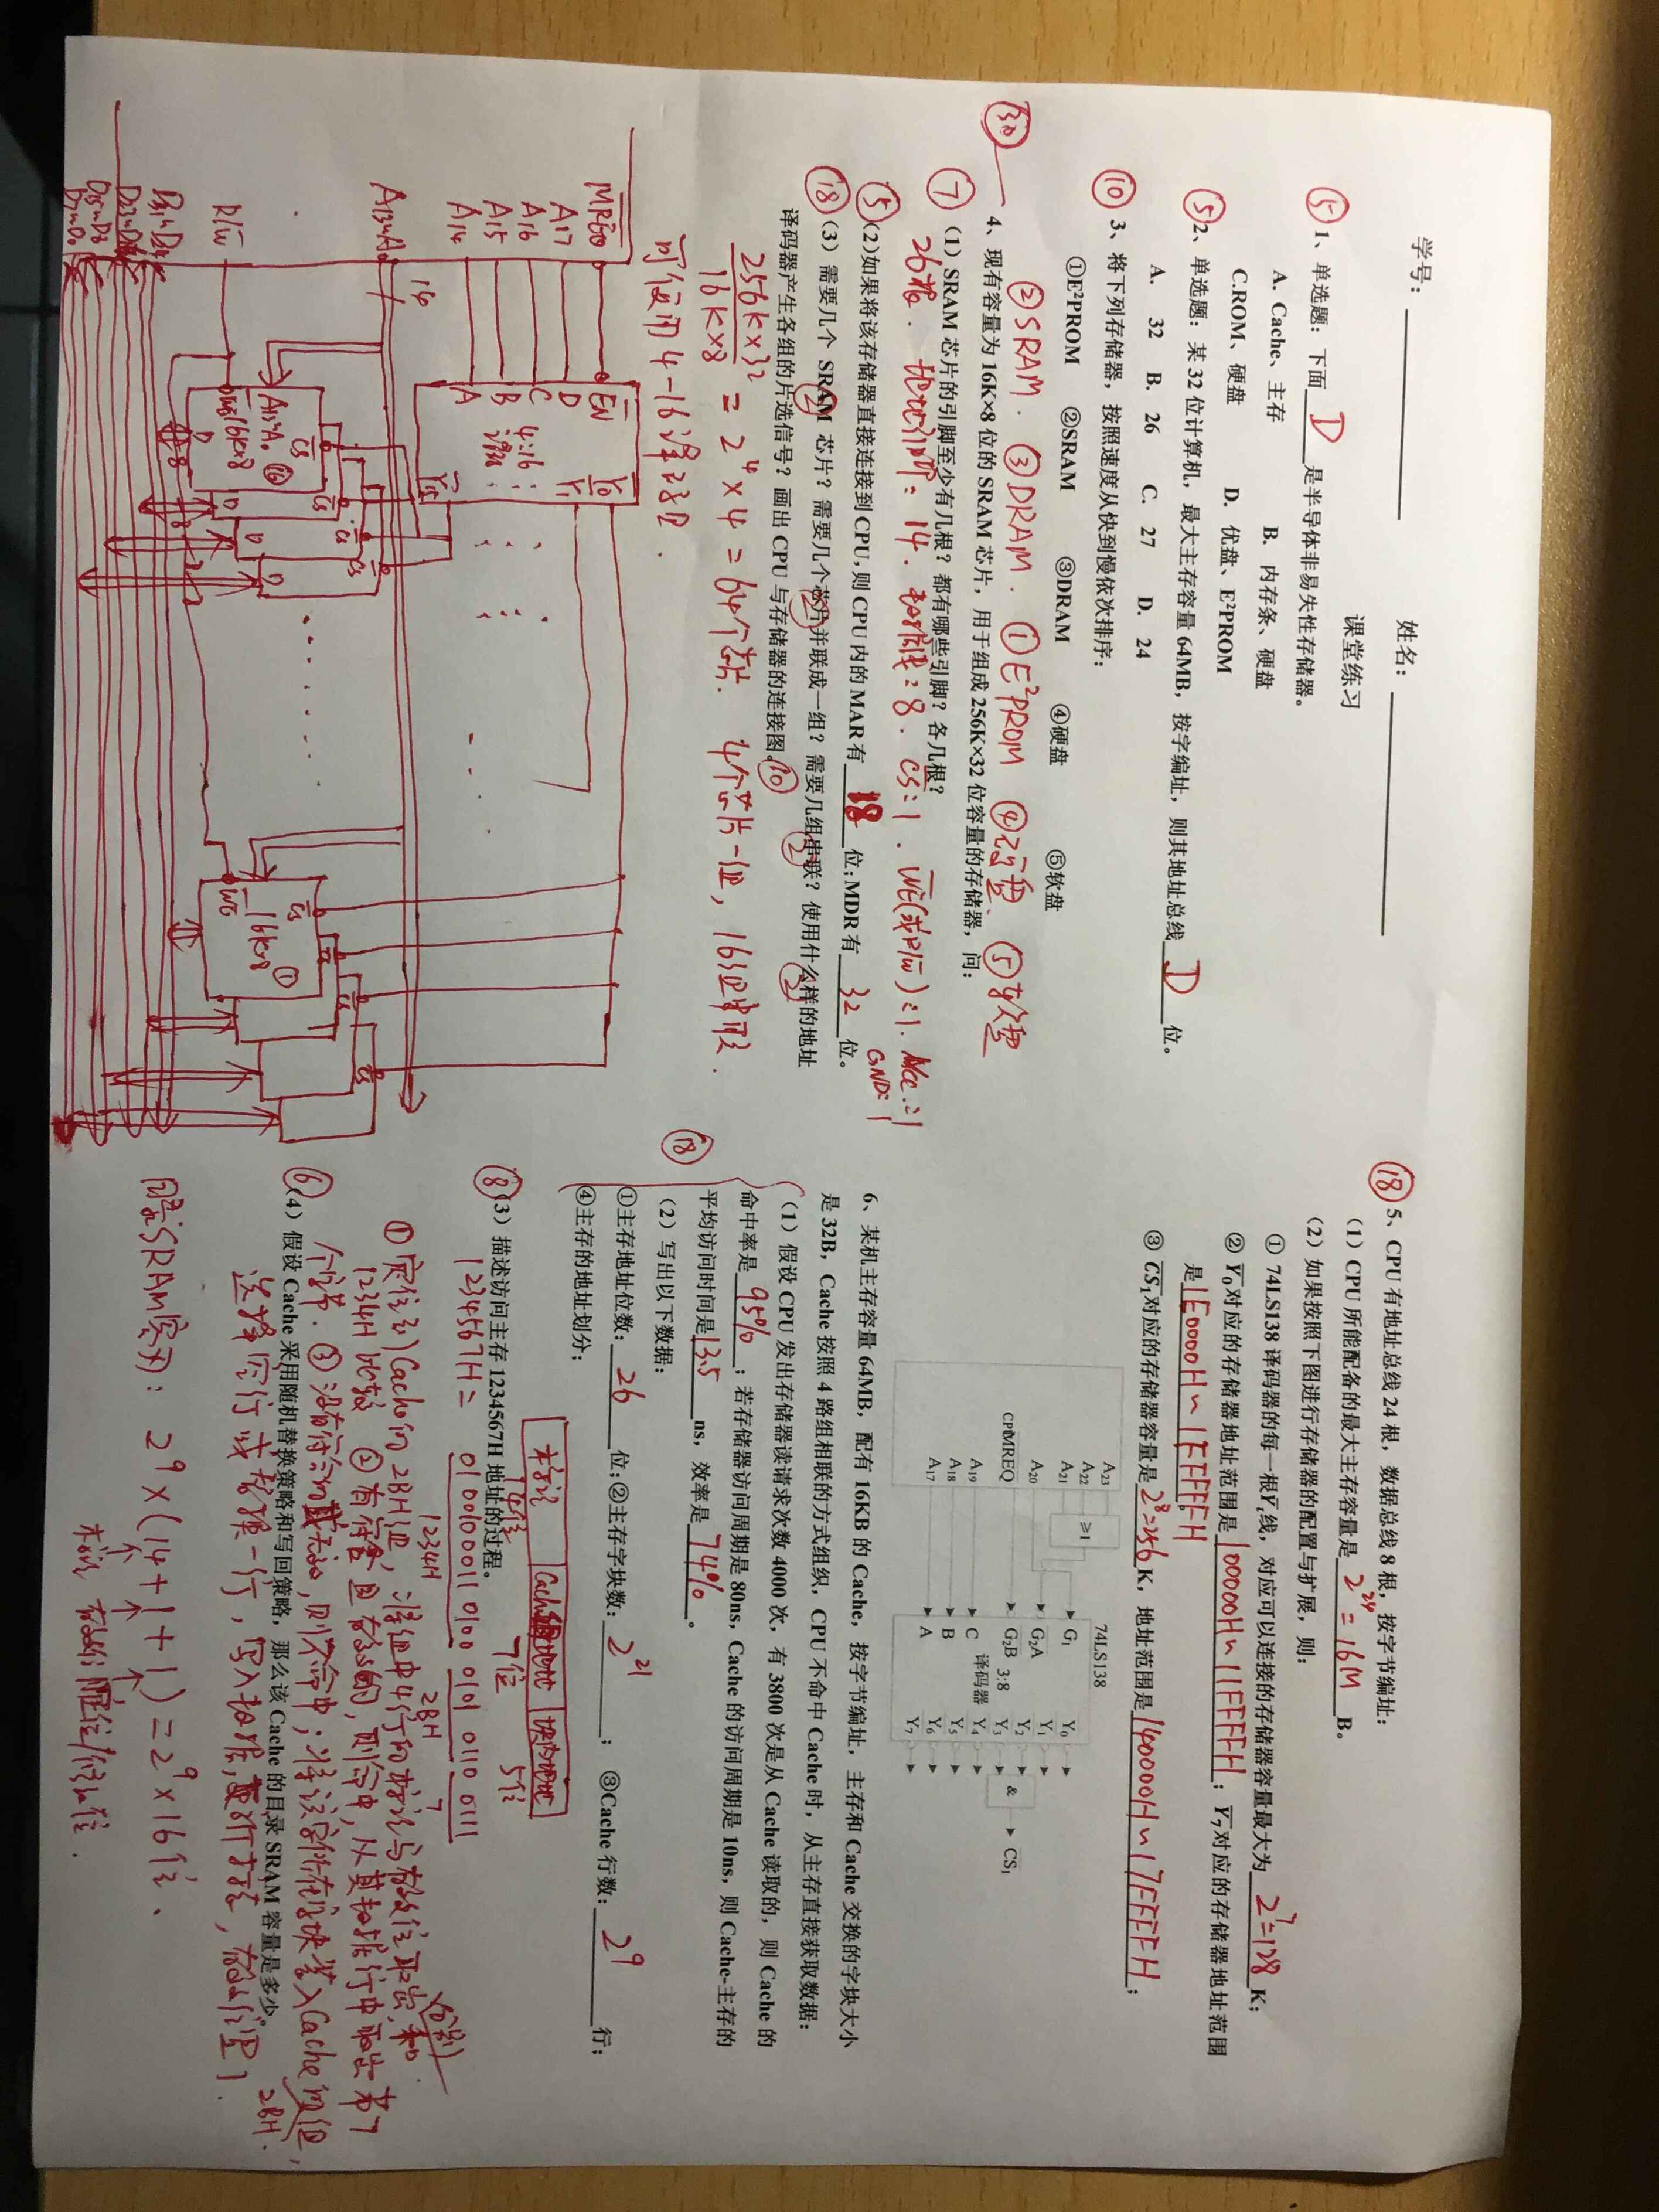 学号： 姓名：
课堂练习
⑤ 1、单选题：下面 D 是半导体非易失性存储器。
A. Cache、主存 B. 内存条、硬盘
C.ROM、硬盘 D. 优盘、E²PROM
⑤ 2、单选题：某 32 位计算机，最大主存容量 64MB，按字编址，则其地址总线 D 位。
A. 32 B. 26 C. 27 D. 24
⑩ 3、将下列存储器，按照速度从快到慢依次排序：
①E²PROM ②SRAM ③DRAM ④硬盘 ⑤软盘
②SRAM. ③DRAM. ①E²PROM ④硬盘、⑤软盘
㉚ 4、现有容量为 16K×8 位的 SRAM 芯片，用于组成 256K×32 位容量的存储器，问：
⑦ （1）SRAM 芯片的引脚至少有几根？都有哪些引脚？各几根？
26根. 地址引脚：14. 数据线：8. CS：1. WE(或R/W)：1. Vcc：1
GND：1
⑤ （2）如果将该存储器直接连接到 CPU，则 CPU 内的 MAR 有 18 位；MDR 有 32 位。
⑱ （3）需要几个 SRAM 芯片？需要几个芯片并联成一组？需要几组串联？使用什么样的地址
② ② ② ②
译码器产生各组的片选信号？画出 CPU 与存储器的连接图。⑩
256K×32
16K×8
= 2⁴×4 = 64个芯片. 4个芯片一组，16组串联.
可使用4-16译码器.
MREQ
A17
A16
A15
A14
EN
D
C
B
A
4:16
译码器
Y0
Y1
Y15
A13~A0
14
R/W
D31~D24
D23~D16
D15~D8
D7~D0
A13~A0
CS
WE
16K×8
⑯
D
8
CS
D
CS
D
CS
D
CS
WE
16K×8
①
CS
CS
CS
⑱ 5、CPU 有地址总线 24 根，数据总线 8 根，按字节编址：
（1）CPU 所能配备的最大主存容量是 2²⁴=16M B。
（2）如果按照下图进行存储器的配置与扩展，则：
① 74LS138 译码器的每一根Y̅ᵢ线，对应可以连接的存储器容量最大为 2⁷=128 K；
② Y̅₀对应的存储器地址范围是 100000H~11FFFFH；Y̅₇对应的存储器地址范围
是 1E0000H~1FFFFFH
③ C̅S̅₁对应的存储器容量是 2⁸=256 K，地址范围是 140000H~17FFFFH；
A23
A22
A21
A20
CPU
MREQ
A19
A18
A17
≥1
74LS138
G1
G2A
G2B
C
B
A
3:8
译码器
Y0
Y1
Y2
Y3
Y4
Y5
Y6
Y7
&
CS1
6、某机主存容量 64MB，配有 16KB 的 Cache，按字节编址，主存和 Cache 交换的字块大小
是 32B，Cache 按照 4 路组相联的方式组织，CPU 不命中 Cache 时，从主存直接获取数据：
（1）假设 CPU 发出存储器读请求次数 4000 次，有 3800 次是从 Cache 读取的，则 Cache 的
命中率是 95% ；若存储器访问周期是 80ns，Cache 的访问周期是 10ns，则 Cache-主存的
平均访问时间是 13.5 ns，效率是 74% 。
⑱ （2）写出以下数据：
①主存地址位数： 26 位；②主存字块数： 2²¹ ； ③Cache 行数： 2⁹ 行；
④主存的地址划分；
标记 Cache组地址 块内地址
14位 7位 5位
⑧ （3）描述访问主存 1234567H 地址的过程。
1234H 2BH 7
1234567H = 01 0010 0011 0100 0101 0110 0111
①定位到Cache的2BH组，将组中4行的标记与有效位取出，分别和
1234H比较 ②有符合且有效的，则命中，从其数据行中取出第7
个字节. ③没有符合的或无效，则不命中；将该字所在的块装入Cache的组
2BH.
⑥ （4）假设 Cache 采用随机替换策略和写回策略，那么该 Cache 的目录 SRAM 容量是多少。
选择空行或替换一行，写入数据，更新标记，有效位置1.
目录SRAM容量：2⁹×(14+1+1)=2⁹×16位.
标记 有效位 脏位/修改位.